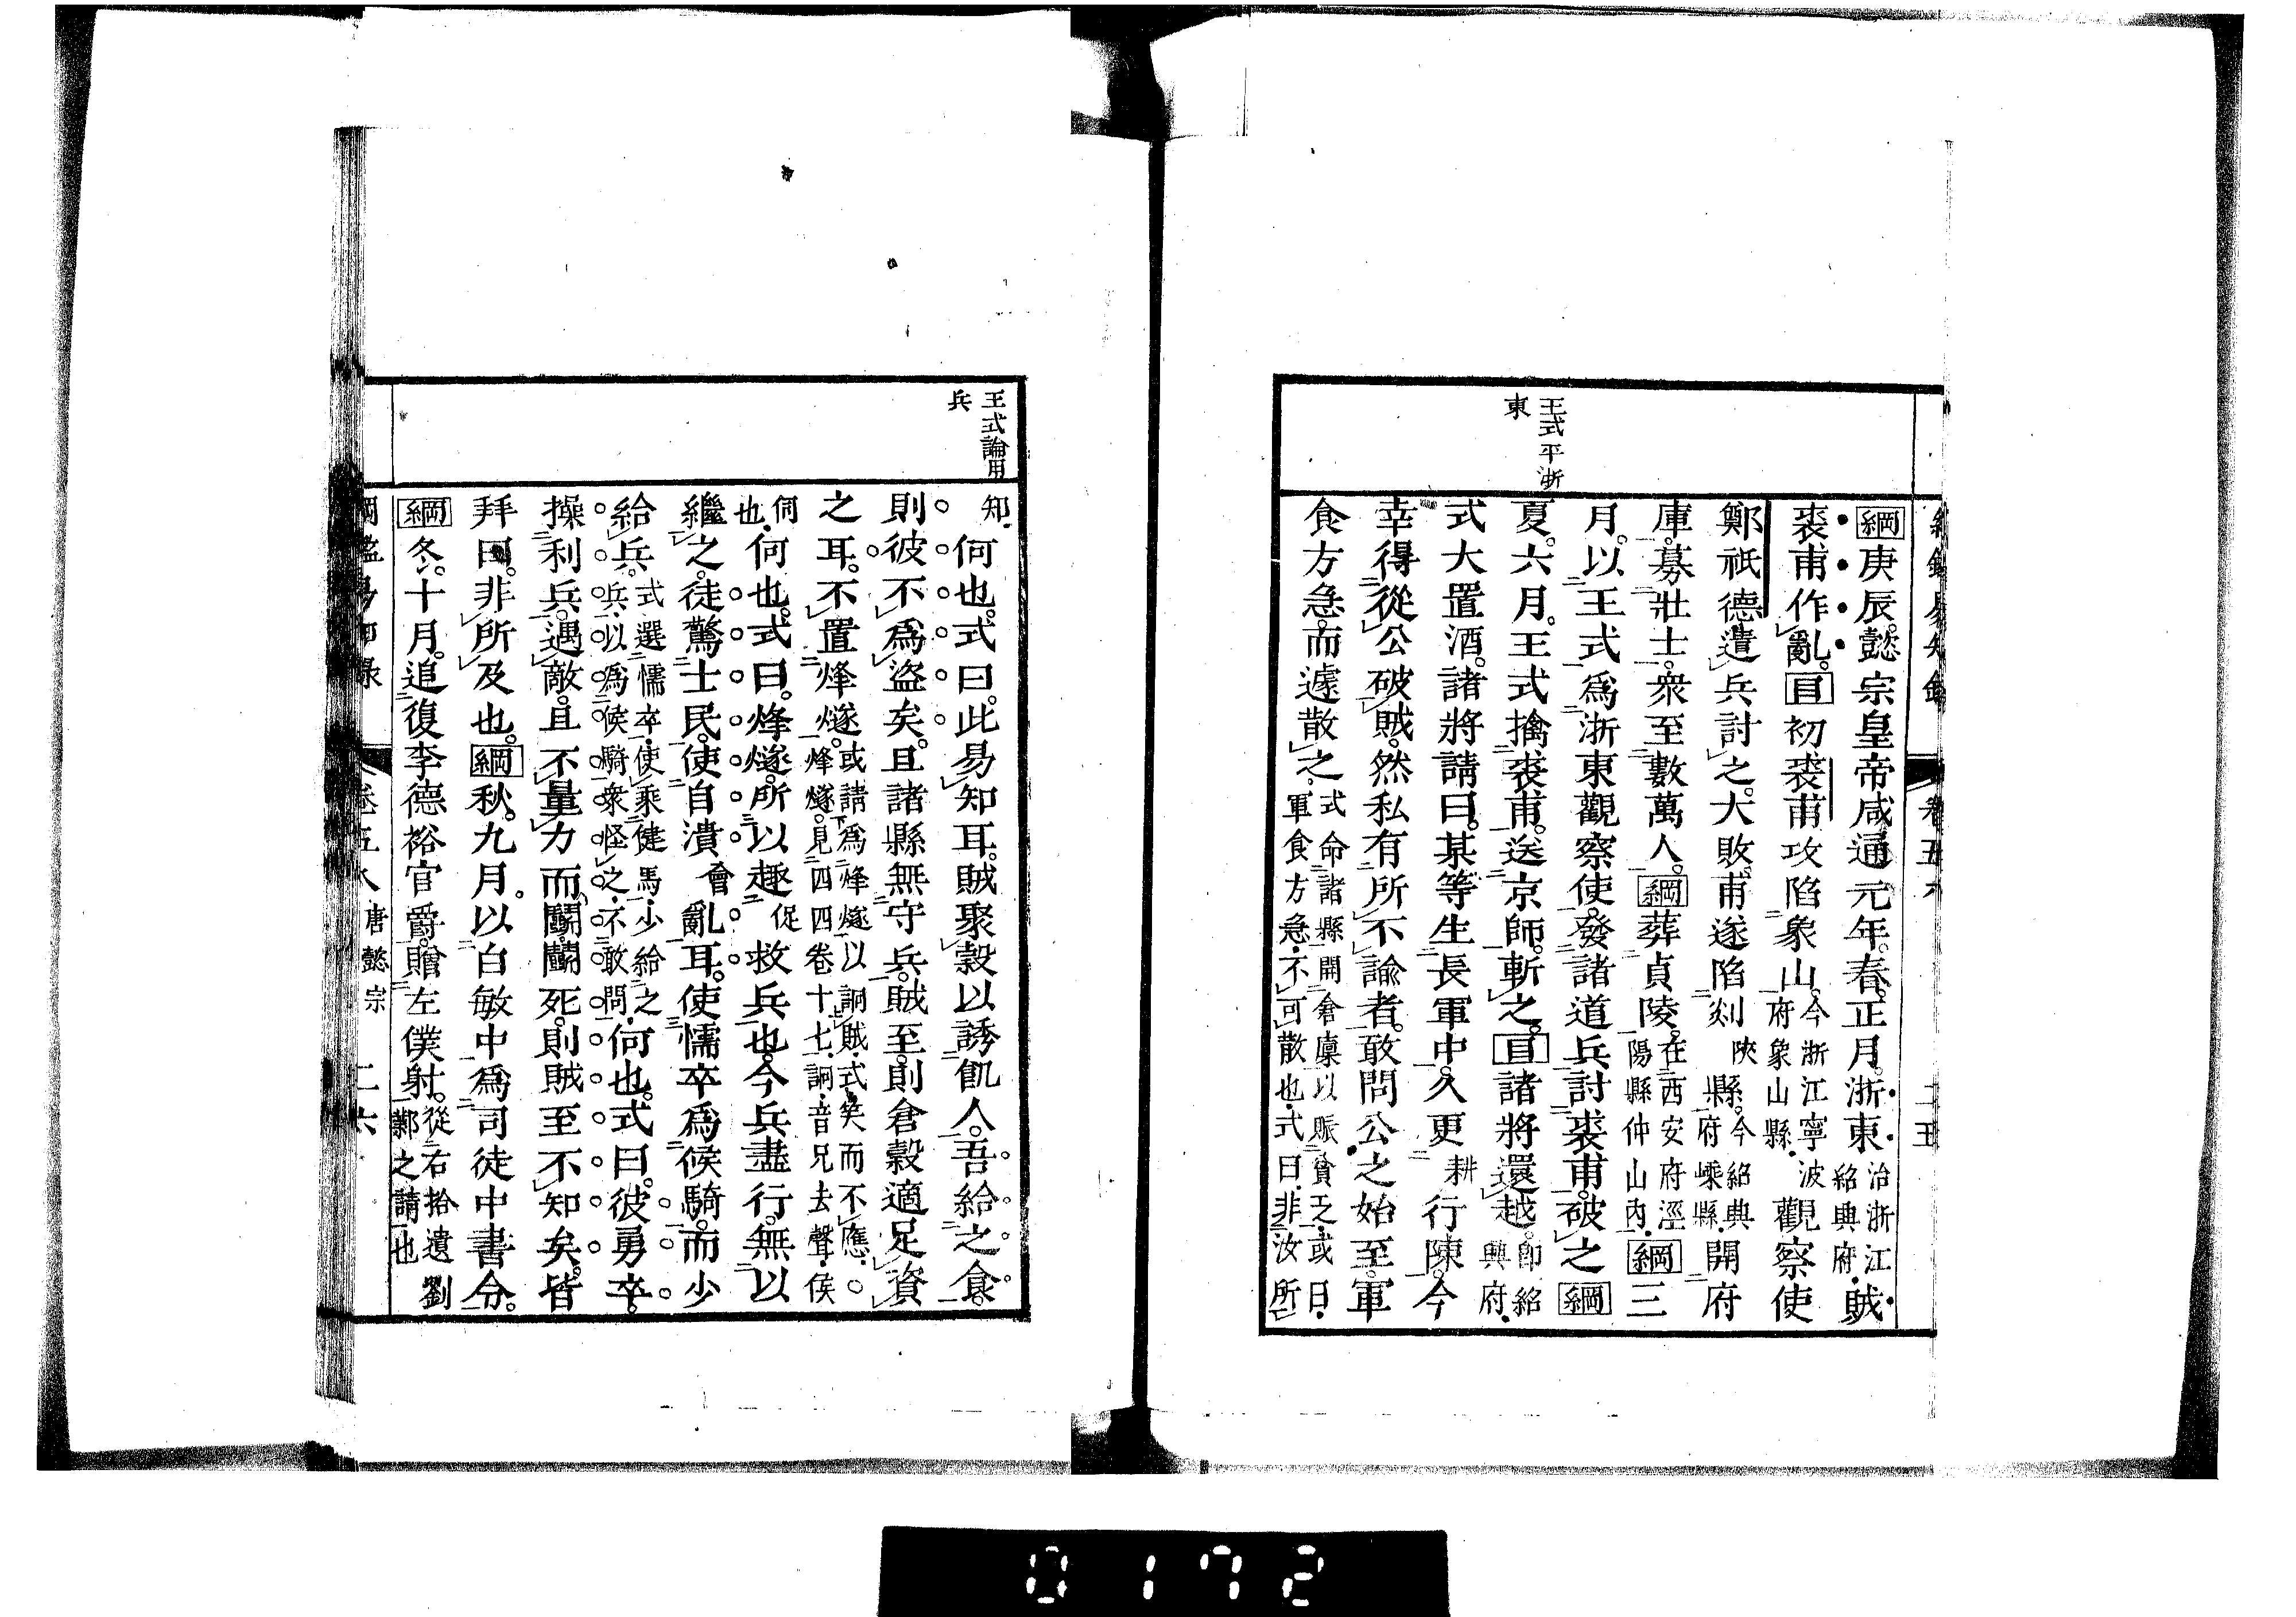 王式平浙
東
綱庚辰懿宗皇帝咸通元年。春。正月。浙東治浙江紹興府賊
裘甫作亂。目初裘甫攻陷象山。今浙江寧波府象山縣觀察使
鄭祇德遣兵討之。大敗。甫遂陷剡陝縣。今紹興府嵊縣開府
庫。募壯士。衆至數萬人。綱葬貞陵。在西安府涇陽縣仲山內綱三
月。以王式爲浙東觀察使。發諸道兵討裘甫。破之綱
夏。六月。王式擒裘甫。送京師。斬之。目諸將還越。卽紹興府
式大置酒。諸將請曰。某等生長軍中。久更耕行陳。今
幸得從公破賊。然私有所不諭者。敢問公之始至。軍
食方急。而遽散之。式命諸縣開倉廩以賑貧乏。或曰。軍食方急。不可散也。式曰。非汝所
王式論用
兵
知何也。式曰。此易知耳。賊聚穀以誘飢人。吾給之食。
則彼不爲盜矣。且諸縣無守兵。賊至。則倉穀適足資
之耳。不置烽燧。或請爲烽燧以詗賊。式笑而不應。○烽燧。見四四卷十七。詗。音兄去聲。候
伺也何也。式曰。烽燧。所以趣促救兵也。今兵盡行。無以
繼之。徒驚士民。使自潰會亂耳。使懦卒爲候騎。而少
給兵。式選懦卒。使乘健馬。少給之兵。以爲候騎衆怪之。不敢問何也。式曰。彼勇卒。
操利兵。遇敵。且不量力而鬬。鬬死。則賊至不知矣。皆
拜曰。非所及也。綱秋。九月。以白敏中爲司徒中書令。
綱冬。十月。追復李德裕官爵。贈左僕射。從右拾遺劉鄴之請也
唐懿宗